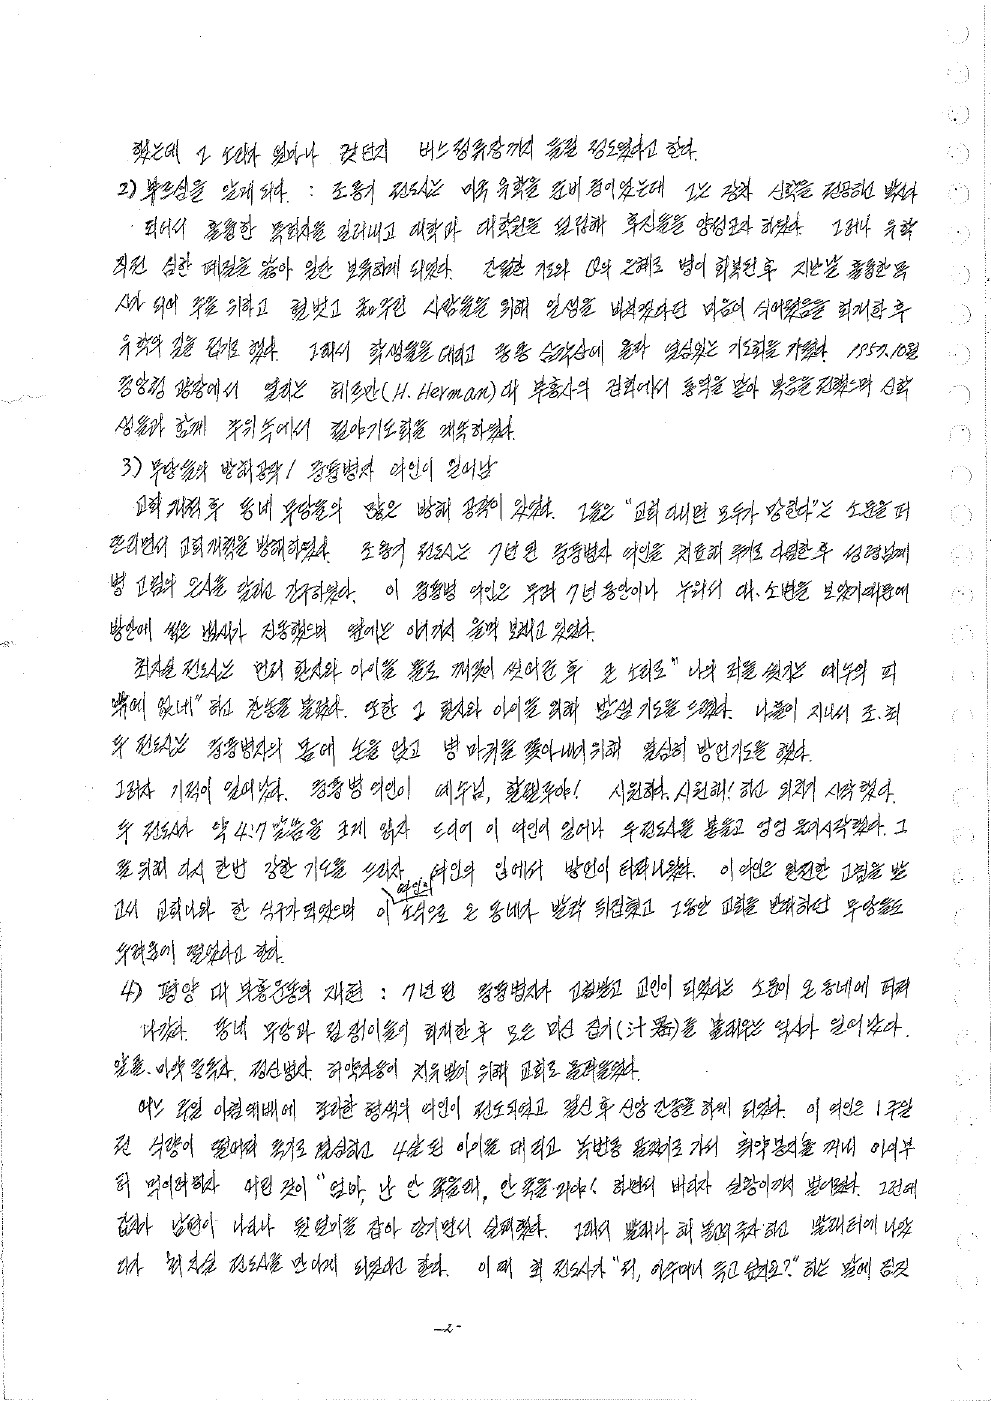 했는데 그 소리가 얼마나 컸던지 버스 정류장까지 들릴 정도였다고 한다.
2) 부르심을 알게 되다. : 조용기 전도사는 미국 유학을 준비 중이었는데 그는 장차 신학을 전공하고 박사가
되어서 훌륭한 목회자를 길러내고 대학과 대학원을 설립해 후진들을 양성코자 하였다. 그러나 유학
직전 심한 폐질을 앓아 일단 보류하게 되었다. 간절한 기도와 은혜로 병이 회복된 후 지난날 훌륭한 목
사가 되어 주를 위하고 헐벗고 굶주린 사람들을 위해 일생을 바치겠다던 마음이 식어졌음을 회개한 후
유학의 길을 접기로 했다. 그래서 학생들을 데리고 종종 삼각산에 올라 열심있는 기도회를 가졌다. 1957. 10월
중앙청 광장에서 열리는 헤르만(H. Herman) 대 부흥사의 집회에서 통역을 맡아 복음을 전했으며 신학
생들과 함께 추위속에서 철야기도회를 계속하였다.
3) 무당들의 방해공작/ 중풍병자 여인이 일어남
교회 개척 후 동네 무당들의 많은 방해 공작이 있었다. 그들은 "교회 다니면 모두가 망한다"는 소문을 퍼
뜨리면서 교회개척을 방해하였다. 조용기 전도사는 7년 된 중풍병자 여인을 치료해 주기로 다짐한 후 성령님께
병 고침의 은사를 달라고 간구하였다. 이 중풍병 여인은 무려 7년 동안이나 누워서 대·소변을 보았기 때문에
방안에 썩은 냄새가 진동했으며 옆에는 아기까지 울며 보채고 있었다.
최자실 전도사는 먼저 환자와 아이를 물로 깨끗이 씻어준 후 큰 소리로 "나의 죄를 씻기는 예수의 피
밖에 없네" 하고 찬송을 불렀다. 또한 그 환자와 아이를 위해 밤낮 기도를 드렸다. 나흘이 지나서 조·최
두 전도사는 중풍병자의 몸에 손을 얹고 병 마귀를 쫓아내기 위해 열심히 방언기도를 했다.
그러자 기적이 일어났다. 중풍병 여인이 예수님, 할렐루야! 시원하다, 시원해! 하고 외치기 시작했다.
두 전도사가 약 4:7 말씀을 크게 읽자 드디어 이 여인이 일어나 두 전도사를 붙들고 엉엉 울기 시작했다. 그
를 위해 다시 한번 강한 기도를 드리자 여인의 입에서 방언이 터져나왔다. 이 여인은 완전한 고침을 받
고서 교회나와 한 식구가 되었으며 이 여인의 소식으로 온 동네가 발칵 뒤집혔고 그동안 교회를 반대하던 무당들도
두려움에 떨었다고 한다.
4) 평양 대 부흥운동의 재현 : 7년 된 중풍병자가 고침받고 교인이 되었다는 소문이 온 동네에 퍼져
나갔다. 동네 무당과 점쟁이들이 회개한 후 모든 미신 집기(什器)를 불태우는 역사가 일어났다.
알콜·마약 중독자, 정신병자, 허약자들이 치유받기 위해 교회로 몰려들었다.
어느 주일 아침예배에 초라한 행색의 여인이 전도되었고 결신 후 신앙 간증을 하게 되었다. 이 여인은 1주일
전 식량이 떨어져 죽기로 결심하고 4살 된 아이를 데리고 북한 가서 쥐약봉지를 꺼내 아이부
터 먹이려 하자 어린 것이 "엄마, 난 안 죽을래, 안 죽을거야! 하면서 버리자 실랑이까지 벌어졌다. 그런데
갑자기 남편이 나타나 뒷덜미를 잡아 당기면서 실패했다. 그래서 빨래나 해 놓고 죽자 하고 빨래터에 나왔
다가 최자실 전도사를 만나게 되었다고 한다. 이 때 최 전도사가 "저, 아주머니 죽고 싶지요?" 하는 말에 깜짝
-2-